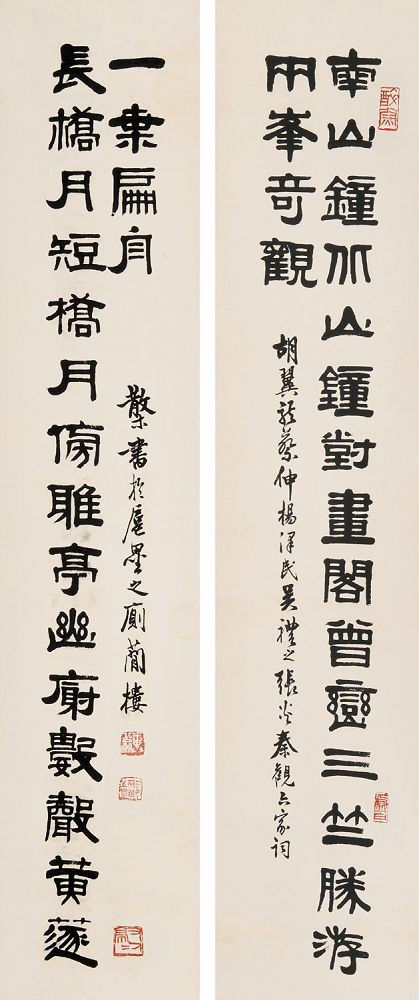 南山鐘北山鐘對畫閣曾巒三竺勝游
兩峯奇觀
胡翼龍蔡伸楊澤民吳禮之張炎秦觀六家詞
長橋月短橋月傍雅亭幽數聲黃蓫
一枼扁舟
書於墨之廁簡樓